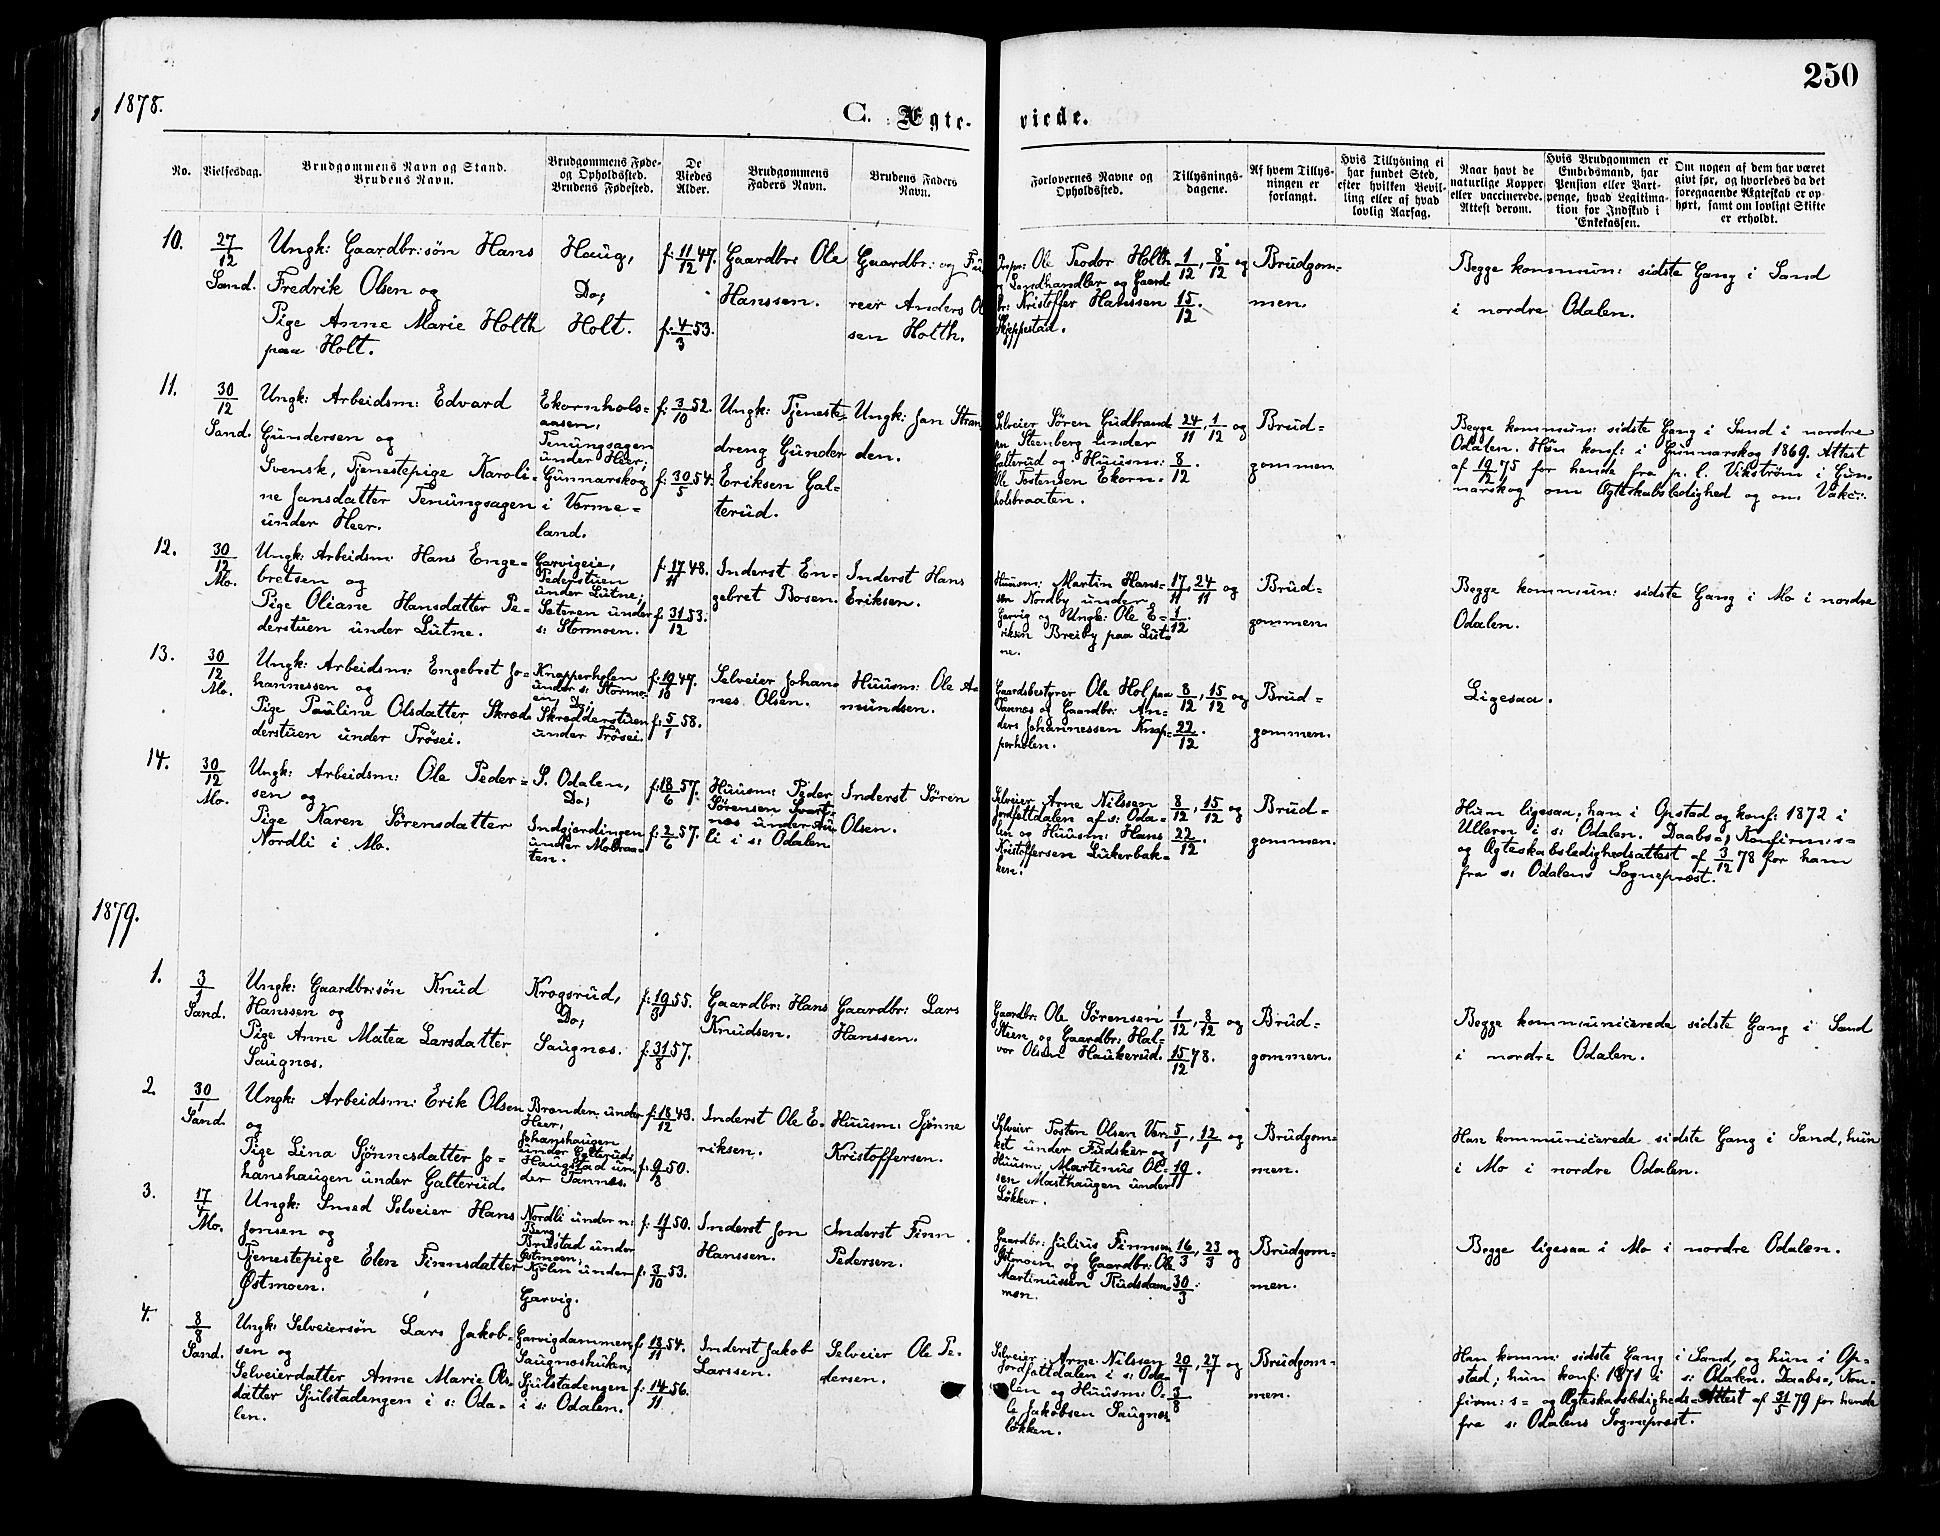 1878.
C. Ægte-
viede.
250
No.
Vielsesdag.
Brudgommens Navn og Stand.
Brudens Navn.
Brudgommens Føde-
og Opholdssted.
Brudens Fødested.
De
Viedes
Alder.
Brudgommens
Faders Navn.
Brudens Faders
Navn.
Forlovernes Navne og
Opholdssted.
Tillysnings-
dagene.
Af hvem Tillys-
ningen er
forlangt.
Hvis Tillysning ei
har fundet Sted,
efter hvilken Bevil-
ling eller af hvad
lovlig Aarsag.
Naar havt de
naturlige Kopper
eller vaccinerede.
Attest derom.
Hvis Brudgommen er
Embedsmand, har
Pension eller Vart-
penge, hvad Legitima-
tion for Indskud i
Enkekassen.
Om nogen af dem har været
givt før, og hvorledes da det
foregaaende Ægteskab er op-
hørt, samt om lovligt Skifte
er erholdt.
10.
27/12
Sand.
Ungk: Gaardbr:søn Hans
Fredrik Olsen og
Pige Anne Marie Holth
paa Holt.
Haug,
Do;
Holt.
f: 11/12 47.
f: 4/3 53.
Gaardbr: Ole
Hanssen.
Gaardbr: og Fu
reer Anders Ol
sen Holth.
Ole Teodor Holth
Landhandler og Gaard
br: Kristoffer Hanssen
Skjeppestad.
1/12, 8/12 og
15/12.
Brudgom-
men.
Begge kommun: sidste Gang i Sand
i nordre Odalen.
11.
30/12
Sand.
Ungk: Arbeidsm: Edvard
Gundersen og
Svensk, Tjenestepige Karoli-
ne Jansdatter Tenungsagen
under Heer.
Ekornhols-
aasen,
Tenungsagen
under Heer;
Gunnarskog
i Verme-
land.
f: 3/10 52.
f: 30/5 54.
Ungk: Tjeneste-
dreng Gunder
Eriksen Gal-
terud.
Ungk: Jan Stran
den.
Selveier Søren Gudbrand-
sen Stenberg under
Galterud og Huusm:
Ole Tostensen Ekorn-
holsbraaten.
24/11, 1/12 og
8/12.
Brud-
gommen.
Begge kommun: sidste Gang i Sand i nordre
Odalen. Hun konf: i Gunnarskog 1869. Attest
af 19/12 75 for hende fra p. l. Vikstrøm i Gun-
narskog om Ægteskabsledighed og om Vakc:.
12.
30/12
Mo.
Ungk: Arbeidsm: Hans Enge-
bretsen og
Pige Oliane Hansdatter Pe-
derstuen under Lutne.
Garvigeie,
Pederstuen
under Lutne;
Sæteren under
s: Stormoen.
f: 17/11 48.
f: 31/12 53.
Inderst En-
gebret Bosen.
Inderst Hans
Eriksen.
Huusm: Martin Hans-
sen Nordby under
Garvig og Ungk: Ole E-
riksen Breiby paa Lut-
ne.
17/11, 24/11 og
1/12.
Brud-
gommen.
Begge kommun: sidste Gang i Mo i nordre
Odalen.
13.
30/12
Mo.
Ungk: Arbeidsm: Engebret Jo-
hannessen og
Pige Pauline Olsdatter Skræd-
derstuen under Trøsei.
Knapperholen
under s: Stormo-
en, Do;
Skrædderstuen
under Trøsei.
f: 19/10 47.
f: 5/1 58.
Selveier Johan-
nes Olsen.
Huusm: Ole A-
mundsen.
Gaardsbestyrer Ole Hol paa
Sannes og Gaardbr: An-
ders Johannessen Knap-
perholen.
8/12, 15/12 og
22/12.
Brud-
gommen.
Ligesaa.
14.
30/12
Mo.
Ungk: Arbeidsm: Ole Peder-
sen og
Pige Karen Sørensdatter
Nordli i Mo.
S. Odalen,
Do;
Indgjerdingen
under Mobraa-
ten.
f: 18/6 57.
f: 2/6 57.
Huusm: Peder
Sørensen Svart-
næs under Au-
li i s: Odalen
Inderst Søren
Olsen.
Selveier Arne Nilssen
Jordfaltdalen af s: Oda-
len og Huusm: Hans
Kristoffersen Lukerbak-
ken.
8/12, 15/12 og
22/12.
Brud-
gommen.
Hun ligesaa; han i Opstad og konf: 1872 i
Ulleren i s: Odalen. Daabs-, Konfirm:s-
og Ægteskabsledighedsattest af 3/12 78 for ham
fra s: Odalens Sognepræst.
1879.
1.
3/1
Sand.
Ungk: Gaardbr:søn Knud
Hanssen og
Pige Anne Matea Larsdatter
Saugnæs.
Krogsrud,
Do;
Saugnæs.
f: 19/3 55.
f: 31/8 57.
Gaardbr: Hans
Knudsen.
Gaardbr: Lars
Hanssen.
Gaardbr: Ole Sørensen
Steen og Gaardbr: Hal-
vor Olsen Haukerud.
1/12, 8/12 og
15/12 78.
Brud-
gommen.
Begge kommunicerede sidste Gang i Sand
i nordre Odalen.
2.
30/1
Sand.
Ungk: Arbeidsm: Erik Olsen
og
Pige Lina Sjønnesdatter Jo-
hanshaugen under Galterud.
Brænden under
Heer,
Johanshaugen
under Galterud;
Haugstad un-
der Sannæs.
f: 18/12 43.
f: 9/3 50.
Inderst Ole E-
riksen.
Huusm: Sjønne
Kristoffersen.
Selveier Tosten Olsen Ver-
ket under Fudsker og
Huusm: Martinus Ol-
sen Masthaugen under
Løkker.
5/1, 12/1 og
19/1.
Brudgom-
men.
Han kommunicerede sidste Gang i Sand, hun
i Mo i nordre Odalen.
3.
17/4
Mo.
Ungk: Smed Selveier Hans
Jonsen og
Tjenestepige Elen Finnsdatter
Østmoen.
Nordli under n:
Berg,
Bruistad under
Østmoen;
Kjølen under
Garvig.
f: 11/7 50.
f: 3/10 53.
Inderst Jon
Hanssen.
Inderst Finn
Pedersen.
Gaardbr: Julius Finnsen
Østmoen og Gaardbr: Ole
Martinussen Rudsdam-
men.
16/3, 23/3 og
30/3.
Brudgom-
men.
Begge ligesaa i Mo i nordre Odalen.
4.
8/8
Sand.
Ungk: Selveiersøn Lars Jakob-
sen og
Selveierdatter Anne Marie Ols-
datter Sjulstadengen i s: Oda-
len.
Garvigdammen,
Saugnæshuken;
Sjulstadengen
i s: Odalen.
f: 18/11 54.
f: 14/11 56.
Inderst Jakob
Larssen.
Selveier Ole Pe-
dersen.
Selveier Arne Nilssen
Jordfaltdalen i s: Oda-
len og Huusm: O-
le Jakobsen Saugnæs-
løkken.
20/7, 27/7 og
3/8
Brudgom-
men.
Han komm: sidste Gang i Sand, og hun i Op-
stad; hun konf: 1871 i s: Odalen. Daabs-, Kon-
firm:s- og Ægteskabsledigheds-Attest af 31/5 79 for hende
fra s: Odalens Sognepræst.